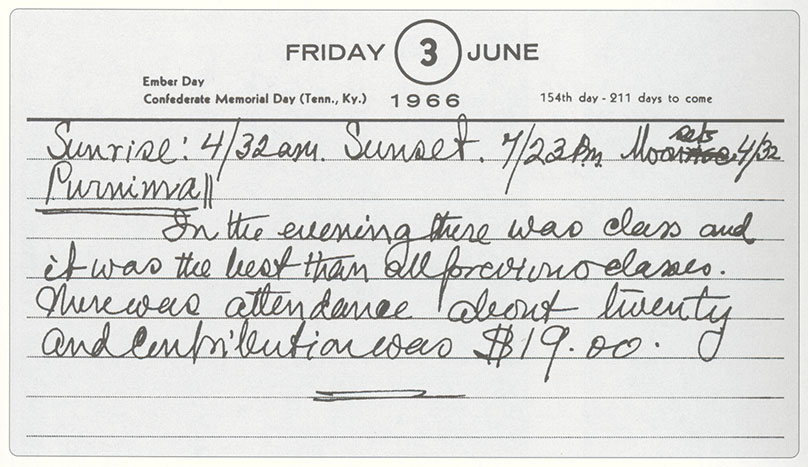 FRIDAY 3 JUNE
Ember Day
Confederate Memorial Day (Tenn., Ky.) 1966 154th day - 211 days to come
Sunrise: 4/32 am. Sunset. 7/23 Pm Moon sets 4/32
Purnima ||
In the evening there was class and
it was the best than all previous classes.
There was attendance about twenty
and contribution was $19.00.